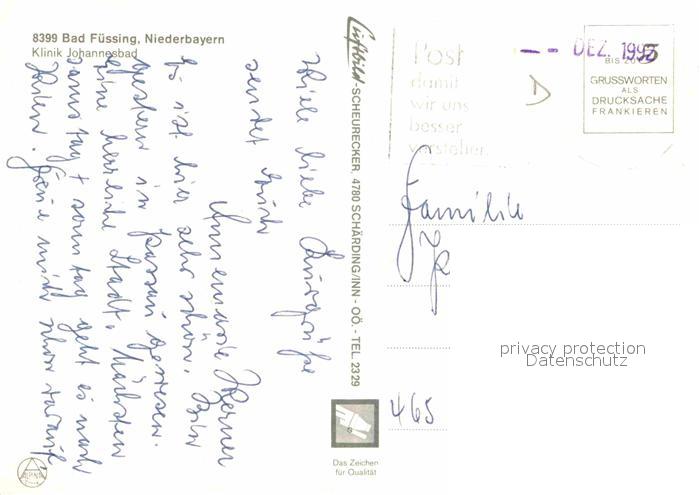 8399 Bad Füssing, Niederbayern
Klinik Johannesbad
Viele liebe Kurgrüße
sendet Euch
Annemarie Werner
Es ist hier sehr schön. Bin
gestern in Passau gewesen.
eine herrliche Stadt. Nächsten
Samstag + Sonntag geht es nach
Wien. Freue mich schon darauf
Luftbild-SCHEURECKER, 4780 SCHÄRDING/INN - OÖ. - TEL. 23 29
Post
damit
wir uns
besser
verstehen
- - DEZ. 1993
D
BIS ZU 5
GRUSSWORTEN
ALS
DRUCKSACHE
FRANKIEREN
Familie
465
privacy protection
Datenschutz
Das Zeichen
für Qualität
ALPINA